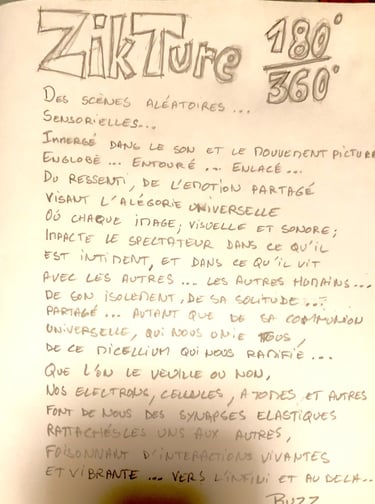 ZikTure 180°/360°
DES SCÈNES ALÉATOIRES...
SENSORIELLES...
IMMERGÉ DANS LE SON ET LE MOUVEMENT PICTURA
ENGLOBÉ ... ENTOURÉ ... ENLACÉ...
DU RESSENTI, DE L'EMOTION PARTAGÉ
VISANT L'ALÉGORIE UNIVERSELLE
OÙ CHAQUE IMAGE, VISUELLE ET SONORE;
IMPACTE LE SPECTATEUR DANS CE QU'IL
EST INTIMENT, ET DANS CE QU'IL VIT
AVEC LES AUTRES... LES AUTRES HUMAINS...
DE SON ISOLEMENT, DE SA SOLITUDE...
PARTAGÉ... AUTANT QUE DE SA COMMUNION
UNIVERSELLE, QUI NOUS UNIE TOUS,
DE CE MICELLIUM QUI NOUS RAMIFIE...
QUE L'ON LE VEUILLE OU NON,
NOS ELECTRONS, CELLULES, ATOMES ET AUTRES
FONT DE NOUS DES SYNAPSES ELASTIQUES
RATTACHÉS LES UNS AUX AUTRES,
FOISONNANT D'INTERACTIONS VIVANTES
ET VIBRANTE ... VERS L'INFINI ET AU DELA...
BUZZ